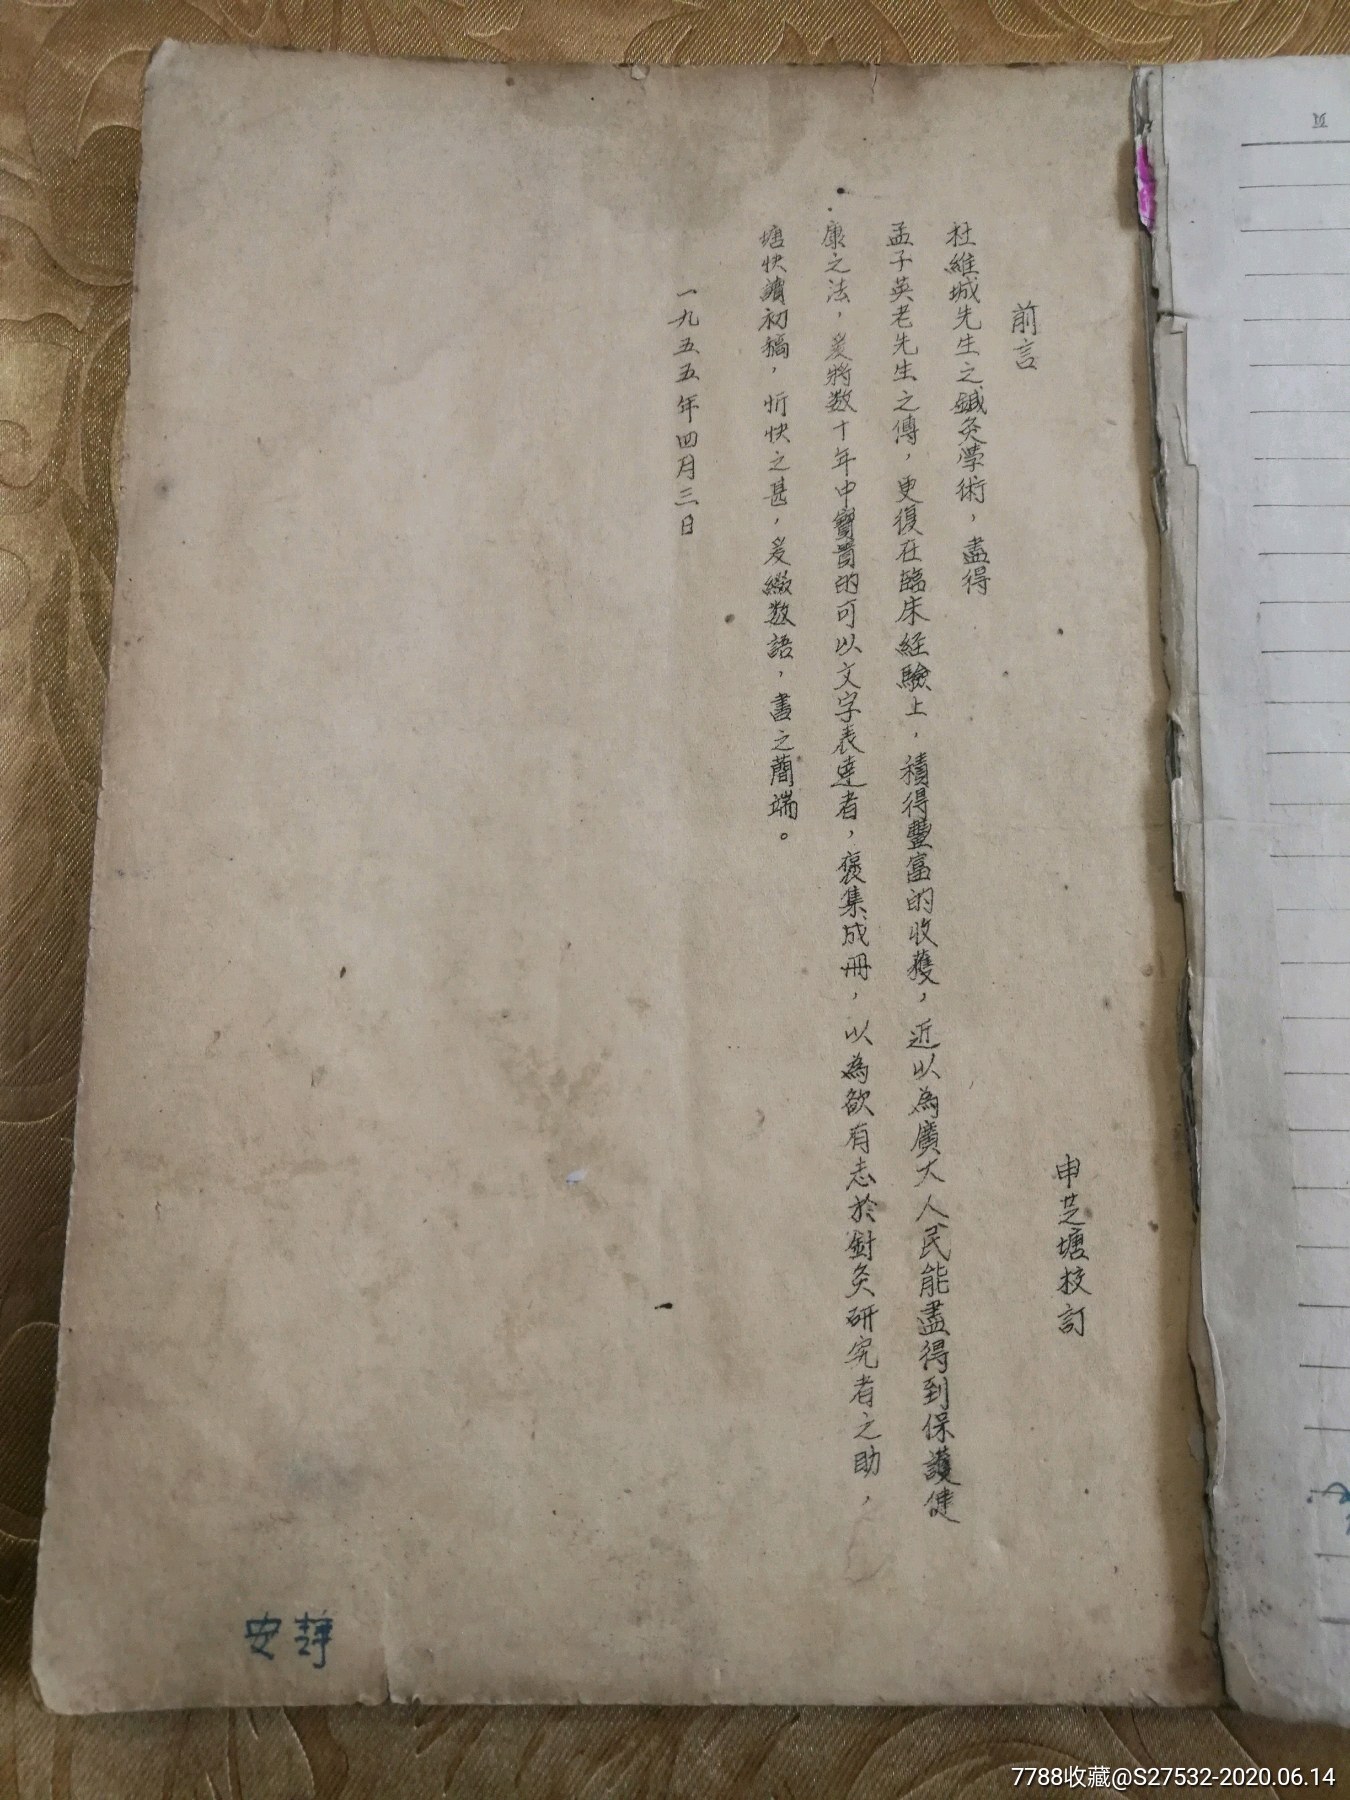 申芝塘校訂
前言
杜維城先生之鍼灸學術，盡得
孟子英老先生之傳，更復在臨床経驗上，積得豐富的收獲，近以為廣大人民能盡得到保護健
康之法，爰將数十年中寶貴的可以文字表達者，裒集成冊，以為欲有志於針灸研究者之助，
塘快讀初稿，忻快之甚，爰綴数語，書之簡端。
一九五五年四月三日
安静
7788收藏@S27532-2020.06.14